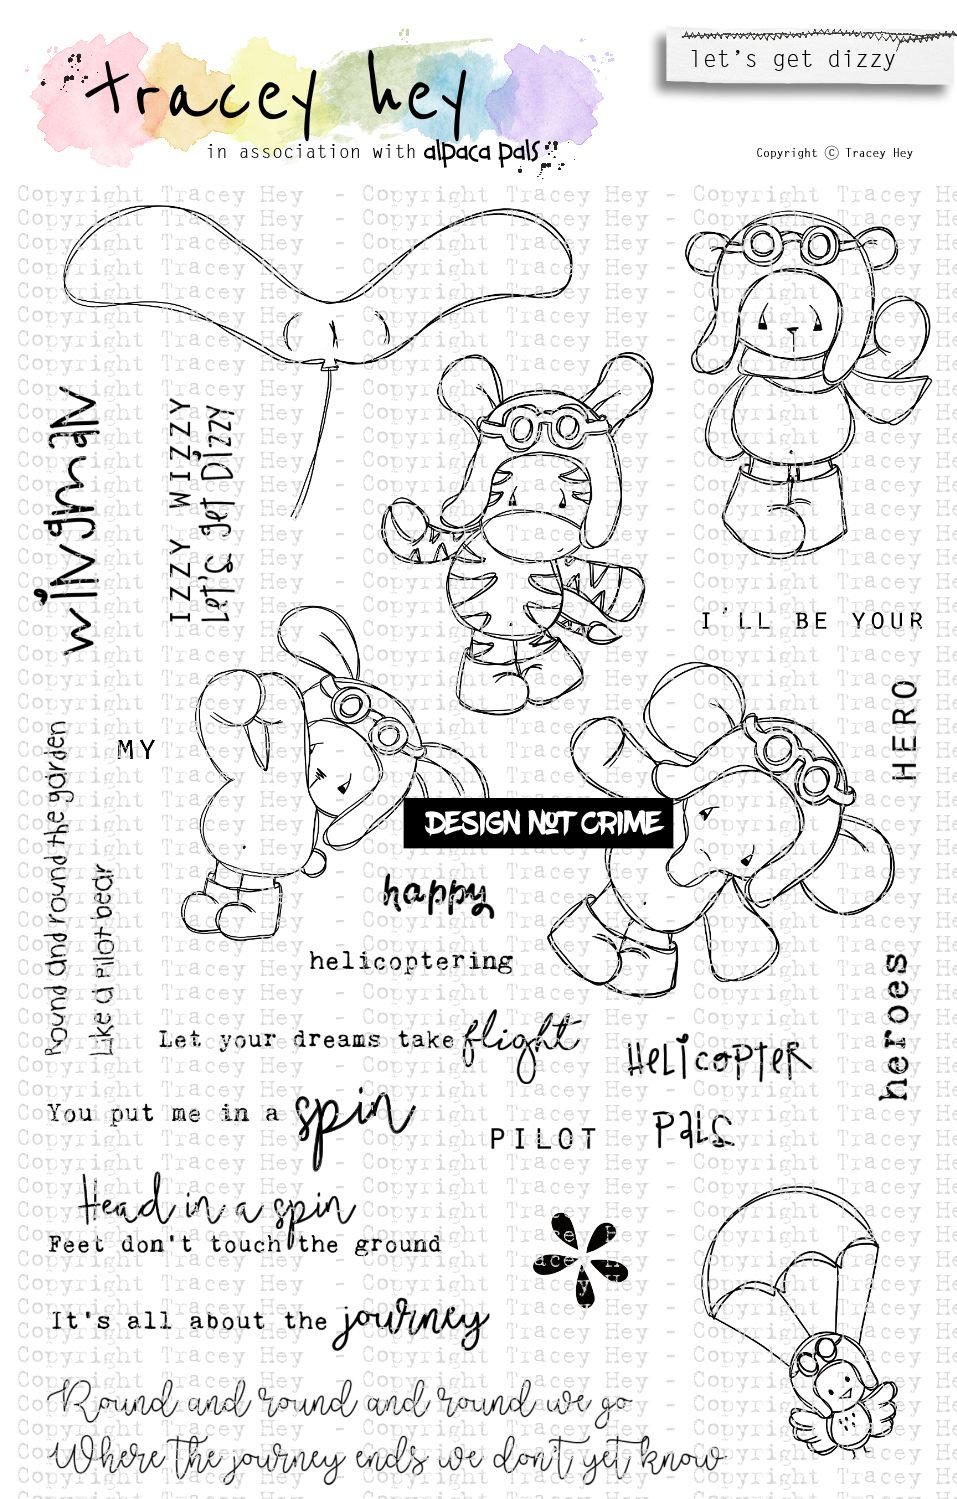 tracey hey
in association with alpaca pals
let's get dizzy
Copyright © Tracey Hey
Copyright Tracey Hey - Copyright Tracey Hey - Copyright Tracey Hey
wingman
IZZY WIZZY
Let's get Dizzy
I'LL BE YOUR
HERO
MY
Round and round the garden
Like a pilot bear
DESIGN NOT CRIME
happy
helicoptering
heroes
Let your dreams take flight
Helicopter
Pals
You put me in a spin
PILOT
Head in a spin
Feet don't touch the ground
It's all about the journey
Round and round and round we go
Where the journey ends we don't yet know